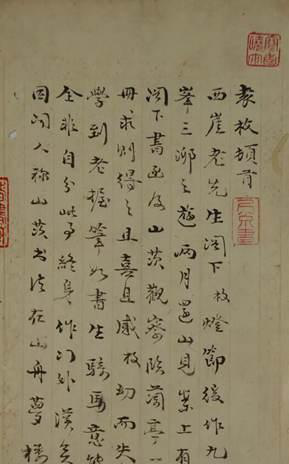 袁枚頓首
西崖老先生閣下枚燈節後作九
峯三泖之遊兩月還山見案上有
閣下書函及山茨觀察臨蘭亭一
冊求則得之且喜且感枚幼而失
學到老握筆如書生騎馬意
全非自分此事終身作門外漢矣
因聞人稱山茨書法在山舟夢樓